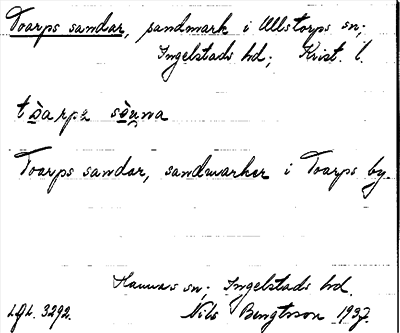 Toarps sandar, sandmark i Ullstorps sn;
Ingelstads hd; Krist. l.
Toarps sandar, sandmarker i Toarps by.
Hannas sn; Ingelstads hd.
Nils Bengtsson 1937.